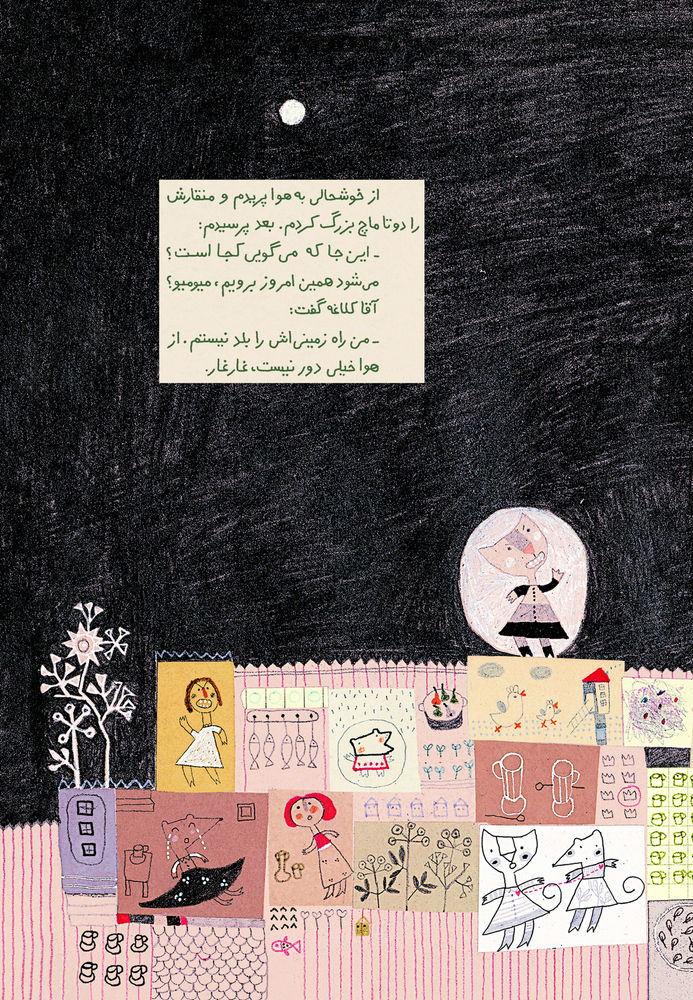 از خوشحالی به هوا پریدم و منقارش
را دو تا ماچ بزرگ کردم. بعد پرسیدم:
ـ این جا که می‌گویی کجا است؟
می‌شود همین امروز برویم، میومیو؟
آقا کلاغه گفت:
ـ من راه زمینی‌اش را بلد نیستم. از
هوا خیلی دور نیست، غارغار.